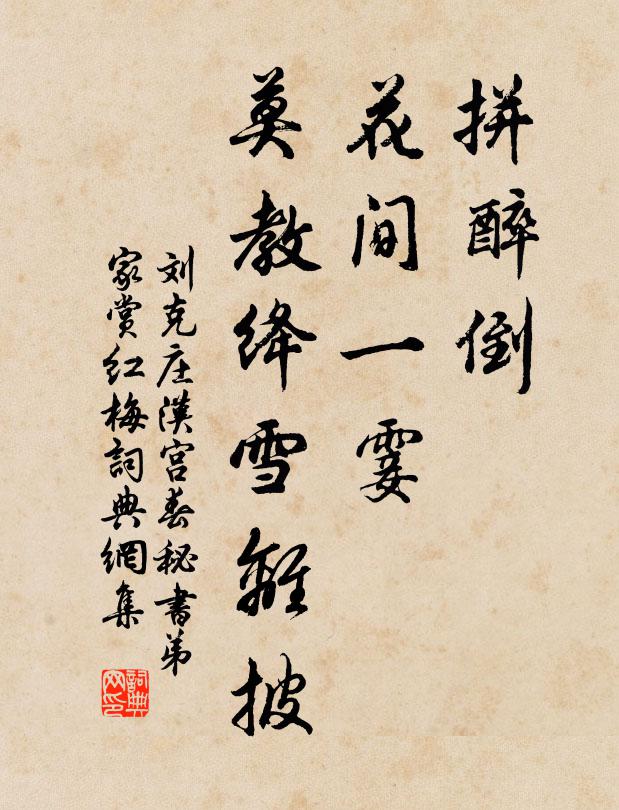 拼醉倒
花间一霎
莫教绛雪离披
刘克庄漢宫春秘書弟
家赏红梅詞典網集
詞典网印